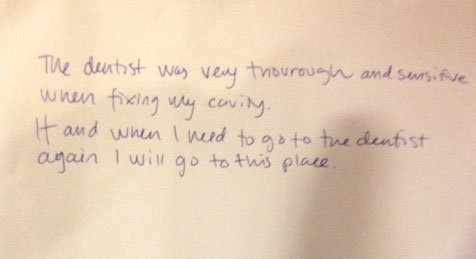 The dentist was very thourough and sensitive
when fixing my cavity.
If and when I need to go to the dentist
again I will go to this place.